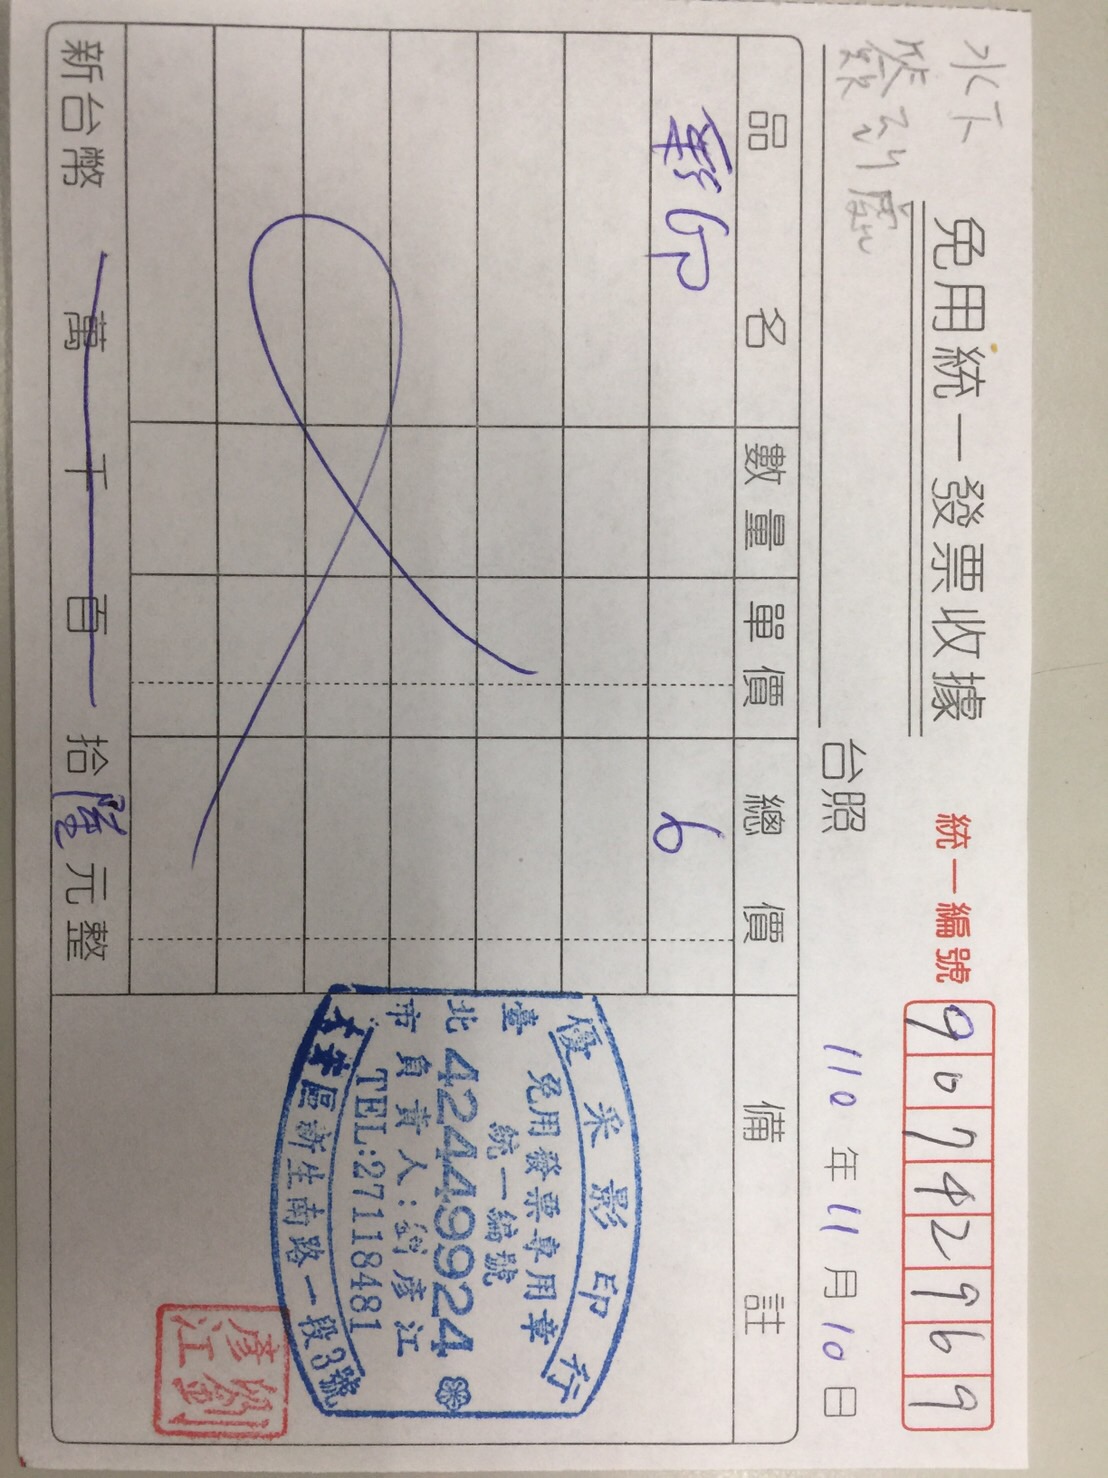 水下
免用統一發票收據
統一編號 90742969
台照
110年11月10日
品名 數量 單價 總價 備註
影印 6
新台幣 萬 千 百 拾 陸 元整
優采影印行
免用發票專用章
統一編號
42449924
負責人:劉彥江
TEL:27118481
臺北市大安區新生南路一段3號
劉彥江